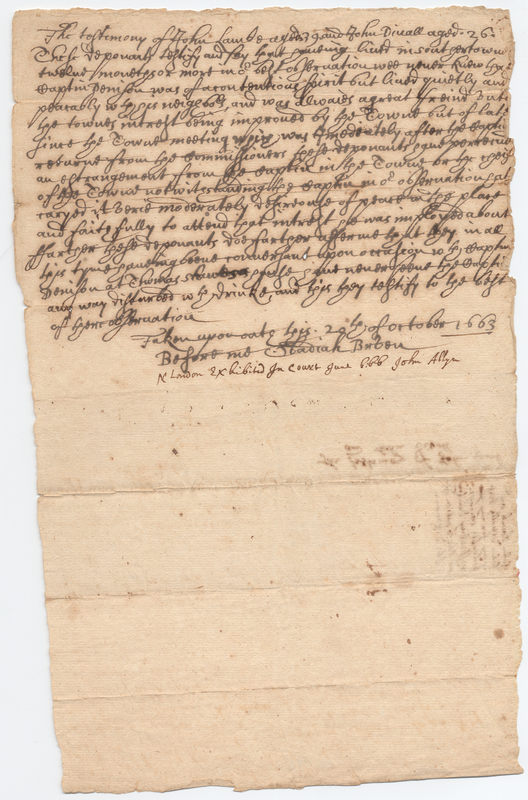 The testimony of John Lambe aged 39 and John Divall aged 26
These deponants testify and say that haveing lived in southertowne
twelve moneths or more in or best observation wee never knew that
Captin Denison was of a contentious spirit but lived quietly and
peacably wth his neighbors, and was allwaies a great freind
the townes intrest being improved by the Towne but of late
since the Towne meeting wch was Imedeately after the Captins
returne from the Commissioners these deponants have perceived
an estrangement from the Captin in the Towne or the
of the Towne notwitstanding the Captin in or observation has
caryed it verie moderately desirouse of peace in the place
and faithfully to attend that intrest he was imployed about
ffarther these deponants doe farther affirme that they in all
this tyme haveing beene conversant upon occation wth Captin
Denison at Thomas house have never seene the Captin
any way disturbed wth drinke, and this they testify to the best
of their observation
Taken upon oath this 20th of October 1663
Before me Obadiah Bruen
N London Exhibited In Court June 666 John Allyn